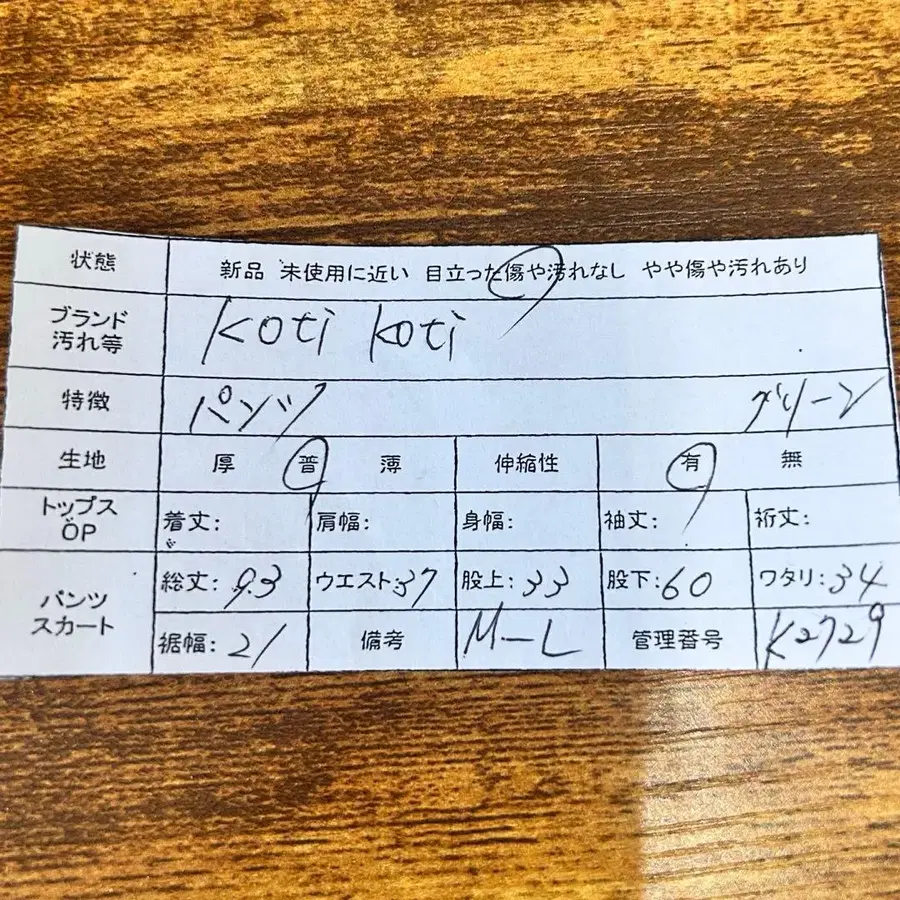 状態 新品 未使用に近い 目立った傷や汚れなし やや傷や汚れあり
ブランド
汚れ等 koti koti
特徴 パンツ グリーン
生地 厚 普 薄 伸縮性 有 無
トップス
OP 着丈: 肩幅: 身幅: 袖丈: 裄丈:
パンツ
スカート 総丈:93 ウエスト:37 股上:33 股下:60 ワタリ:34
裾幅:21 備考 M-L 管理番号 K2729